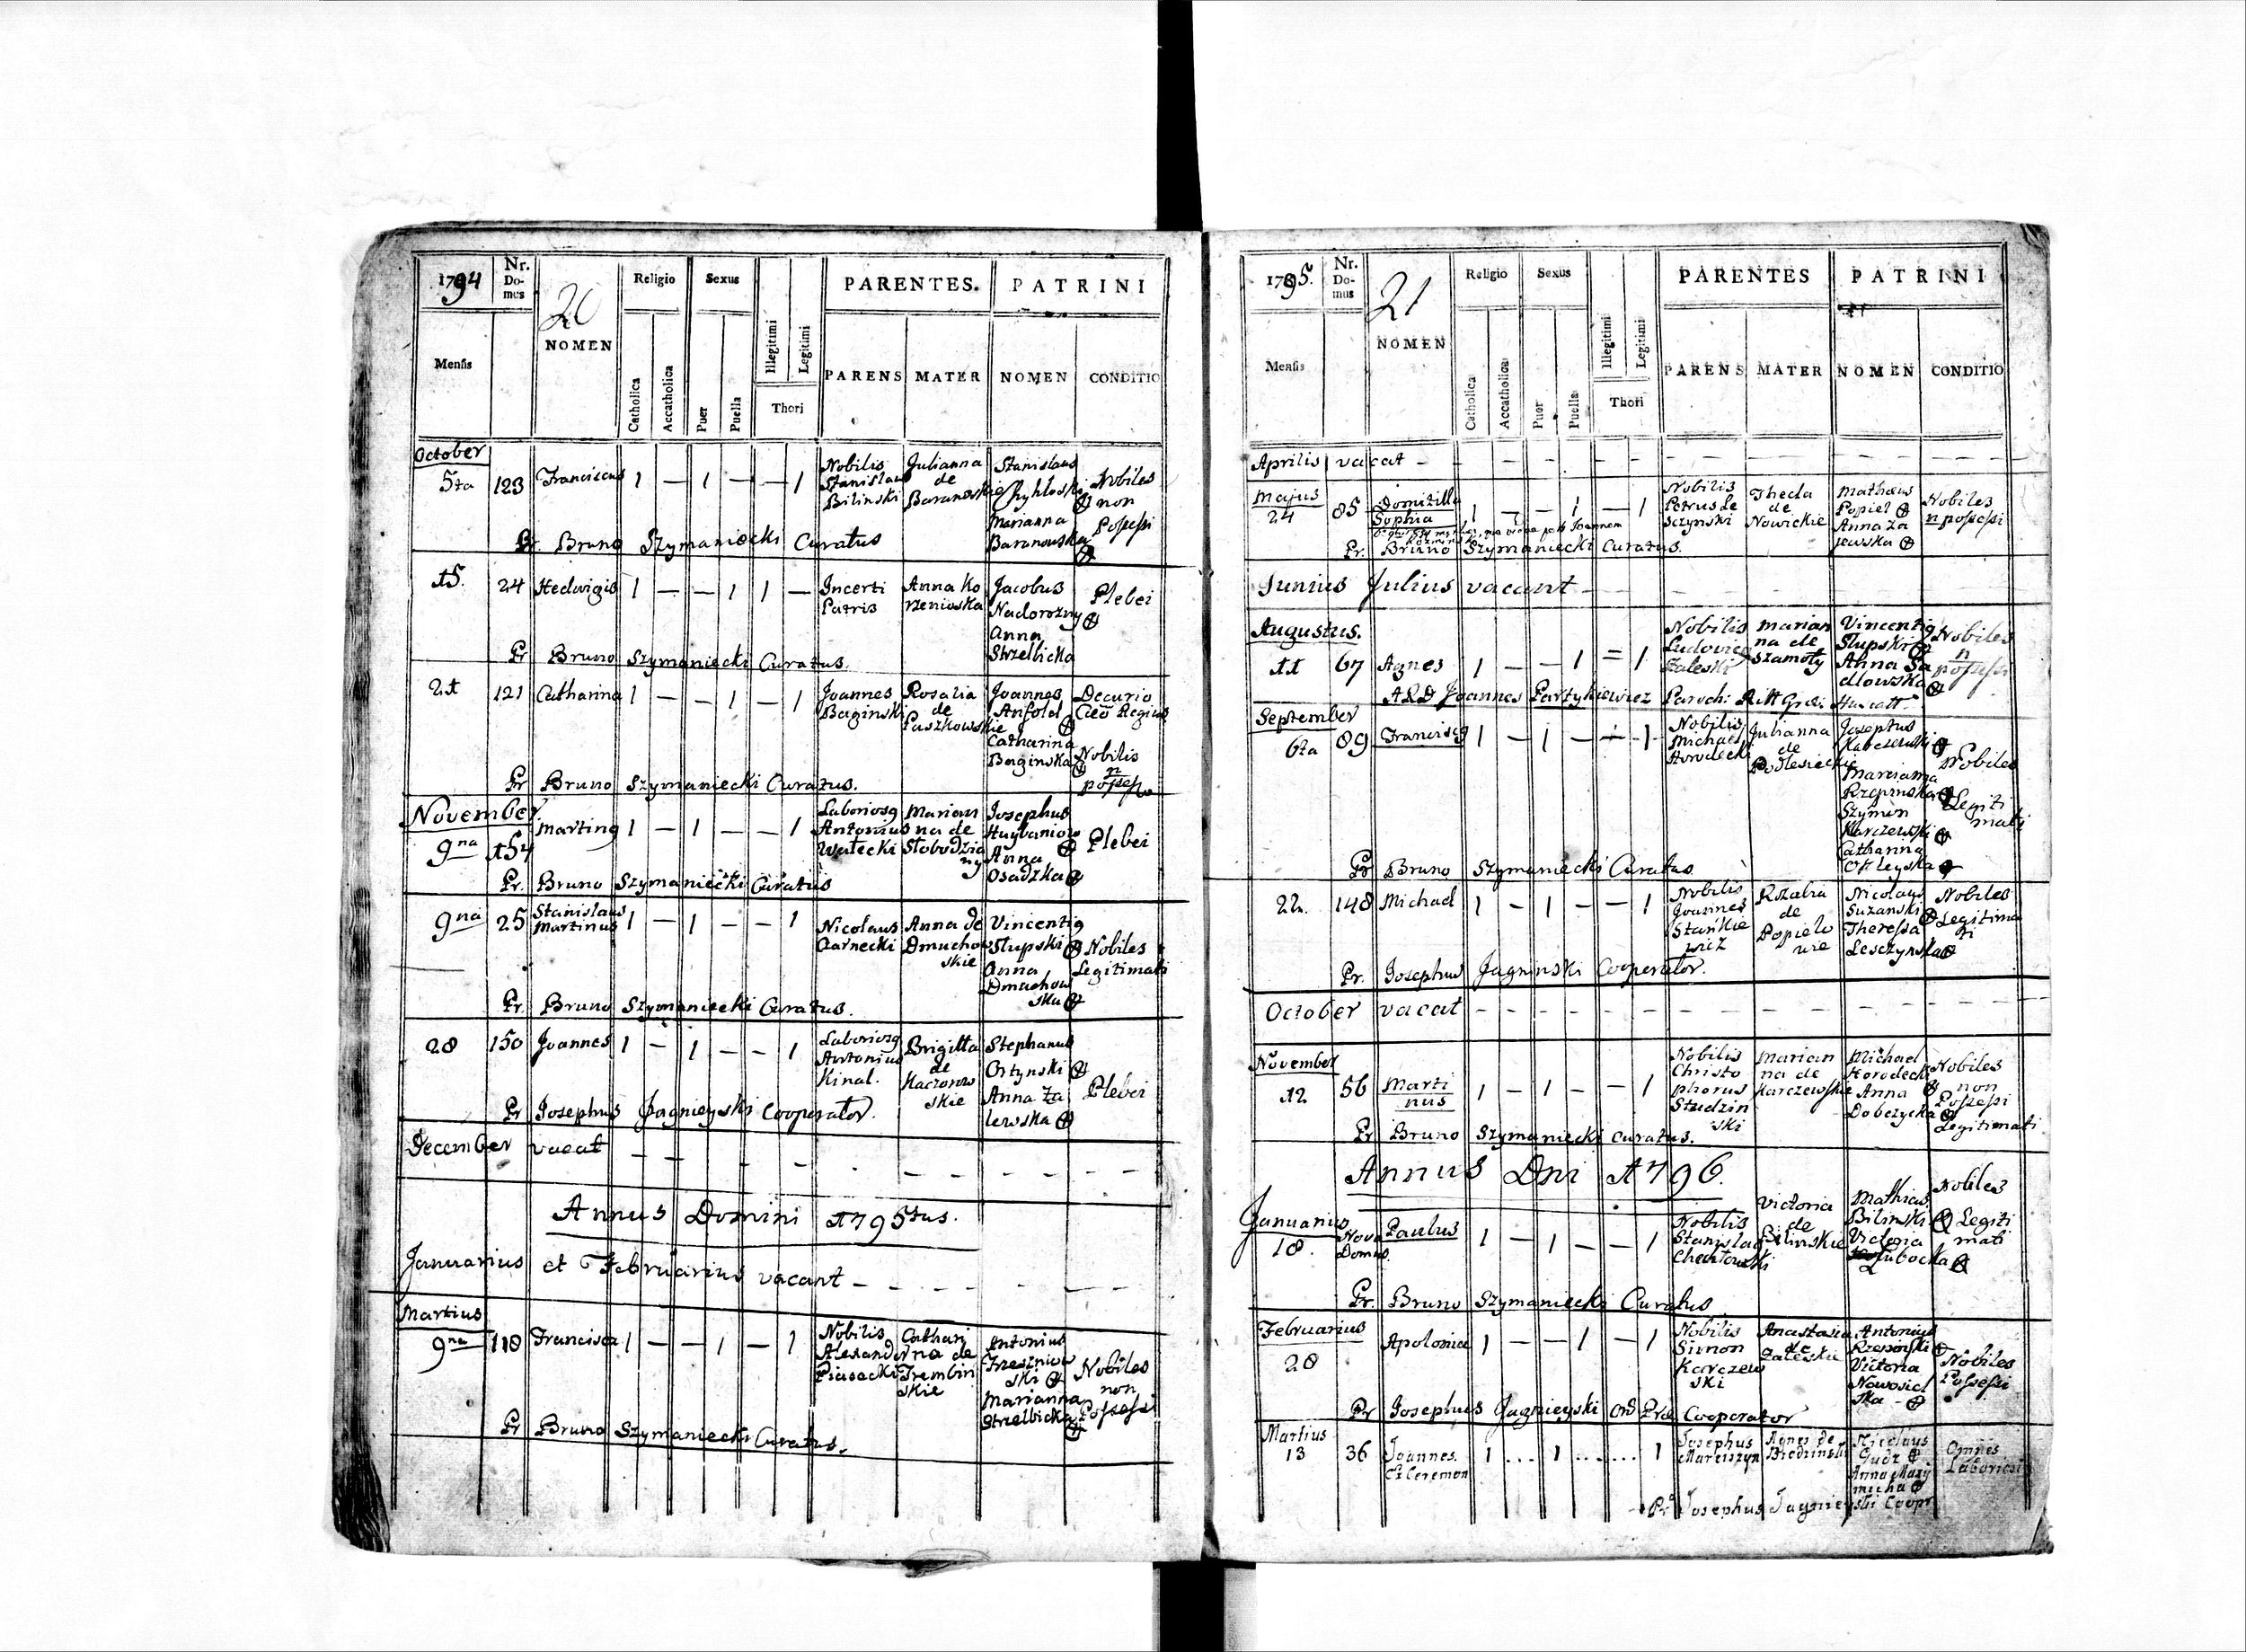 1794
Nr. Domus
20
NOMEN
Religio
Sexus
PARENTES.
PATRINI
Mensis
Catholica
Accatholica
Puer
Puella
Illegitimi
Legitimi
Thori
PARENS
MATER
NOMEN
CONDITIO
October
5ta 123 Franciscus 1 — 1 — — 1
Nobilis Stanislaus Bilinski
Julianna de Baranowskie
Stanislaus
Marianna Baranowska
Nobiles non Possessi
Pr. Bruno Szymaniecki Curatus
15. 24 Hedwigis 1 — — 1 1 —
Incerti Patris
Anna Korzeniowska
Jacobus Nadorozny
Anna Strzelbicka
Plebei
Pr Bruno Szymaniecki Curatus.
21 121 Catharina 1 — — 1 — 1
Joannes Baginski
Rosalia de Paszkowskie
Joannes
Catharina Baginska
Decurio
Nobilis n possess
Pr Bruno Szymaniecki Curatus.
November.
9na 154 Martin9 1 — 1 — — 1
Laborios9 Antonius
Marianna de
Josephus
Anna Osadzka
Plebei
Pr. Bruno Szymaniecki Curatus
9na 25 Stanislaus Martinus 1 — 1 — — 1
Nicolaus Czarnecki
Anna de Dmuchowskie
Vincenti9 Slupski
Anna Dmuchowska
Nobiles Legitimati
Pr. Bruno Szymaniecki Curatus.
28 150 Joannes 1 — 1 — — 1
Laborios9 Antonius Kinal.
Brigitta de Kaczorowskie
Stephanus Ortynski
Anna Zalewska
Plebei
Pr Josephus Jagnieyski Cooperator.
December vacat — — — — — — — — —
Annus Domini 1795tus.
Januarius et Februarius vacant — — — — —
Martius
9na 118 Francisca 1 — — 1 — 1
Nobilis Alexander Piasecki
Catharina de Trembinskie
Antonius
Marianna Strzelbicka
Nobiles non Possessi
Pr Bruno Szymaniecki Curatus.
1795.
Nr. Domus
21
NOMEN
Religio
Sexus
PARENTES
PATRINI
Mensis
Catholica
Accatholica
Puer
Puella
Illegitimi
Legitimi
Thori
PARENS
MATER
NOMEN
CONDITIO
Aprilis vacat — — — — — — — — — —
Majus
24 85 Domizilla Sophia 1 — — 1 — 1
Nobilis Petrus Lesczynski
Thecla de Nowickie
Mathaeus Popiel
Anna Zajewska
Nobiles n possessi
Pr. Bruno Szymaniecki Curatus.
Junius Julius vacant — — — — — —
Augustus.
11 67 Agnes 1 — — 1 = 1
Nobilis Ludovic9 Zaleski
Marianna de Szamoty
Vincenti9 Slupski
Anna Sadlowska
Nobiles n possessi
Joannes Partykiewicz Paroch:
September
6ta 89 Francisc9 1 — 1 — — 1
Nobilis Michael Horodecki
Julianna de Podlesieckie
Josephus Karczewski
Marianna Rzepinska
Szymon Karczewski
Catharina
Nobiles Legitimati
Pr Bruno Szymaniecki Curatus
22. 148 Michael 1 — 1 — — 1
Nobilis Joannes Stankiewicz
Rozalia de Popielowie
Nicolaus Suzanski
Theressa Lesczynska
Nobiles Legitimati
Pr. Josephus Jagninski Cooperator.
October vacat — — — — — — — — — —
November
12 56 Martinus 1 — 1 — — 1
Nobilis Christophorus Studzinski
Marianna de Karczewskie
Michael Horodecki
Anna Dobczycka
Nobiles non Possessi Legitimati
Pr Bruno Szymaniecki Curatus.
Annus Dni 1796.
Januarius
18. Nova Domus. Paulus 1 — 1 — — 1
Nobilis Stanislaus
Victoria de Bilinskie
Mathias Bilinski
Victoria
Nobiles Legitimati
Pr. Bruno Szymaniecki Curatus
Februarius
28 Apolonia 1 — — 1 — 1
Nobilis Simon Karczewski
Anastasia de Zaleskie
Antonius Rzepinski
Victoria Nowosielska
Nobiles Possessi
Pr Josephus Jagnieyski Cooperator
Martius
13 36 Joannes. 1 ... 1 ... ... 1
Josephus Marciszyn
Agnes de
Nicolaus Gudz
Anna
Omnes Laboriosi
Pr Josephus Jagnieyski Coopr